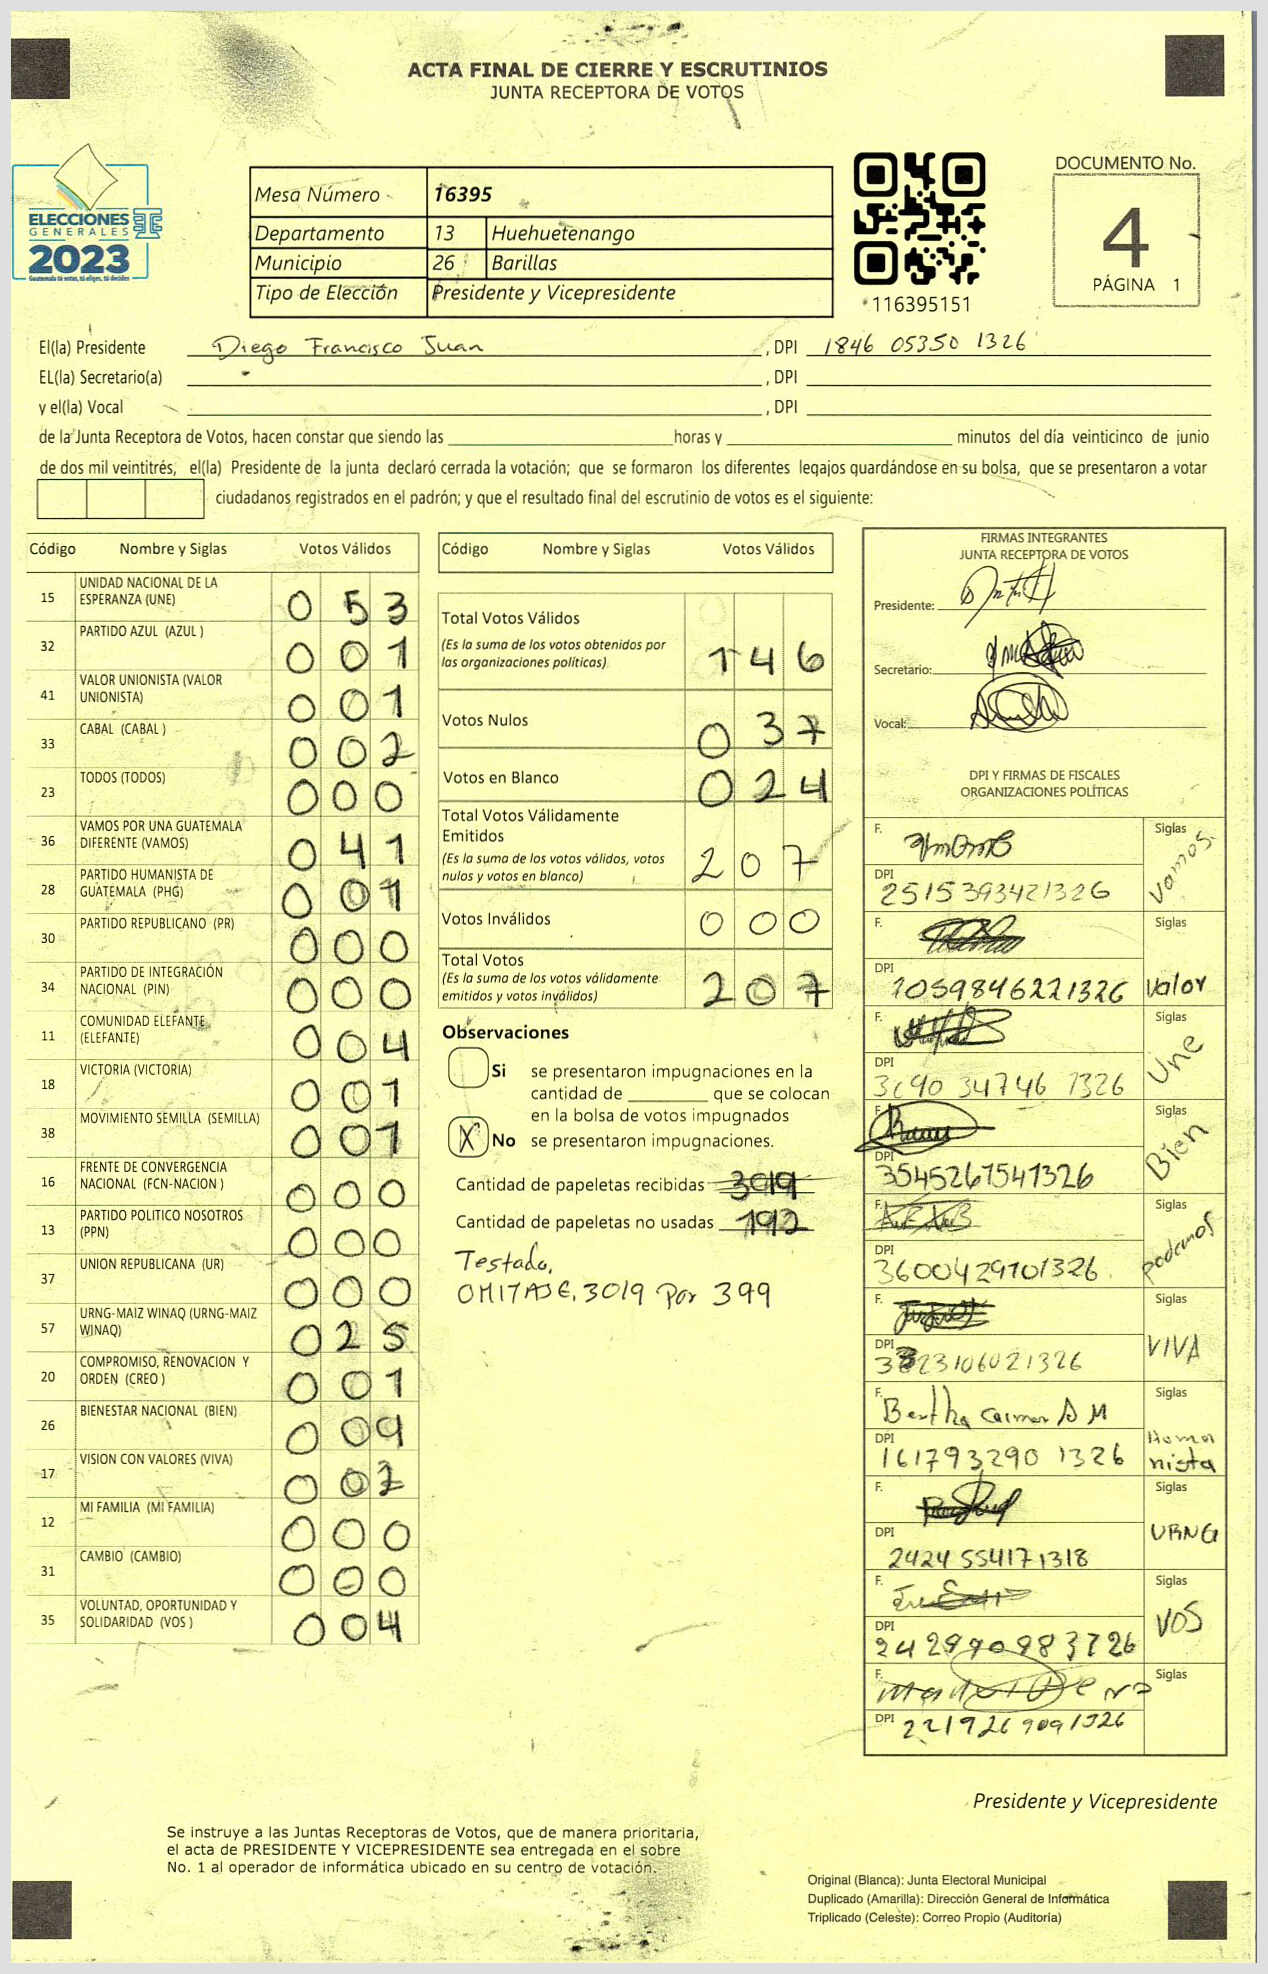 ACTA FINAL DE CIERRE Y ESCRUTINIOS
JUNTA RECEPTORA DE VOTOS
ELECCIONES
GENERALES
2023
Guatemala tú votas, tú eliges, tú decides
Mesa Número 16395
Departamento 13 Huehuetenango
Municipio 26 Barillas
Tipo de Elección Presidente y Vicepresidente
116395151
DOCUMENTO No.
4
PÁGINA 1
El(la) Presidente Diego Francisco Juan , DPI 1846 05350 1326
EL(la) Secretario(a) , DPI
y el(la) Vocal , DPI
de la Junta Receptora de Votos, hacen constar que siendo las horas y minutos del día veinticinco de junio
de dos mil veintitrés, el(la) Presidente de la junta declaró cerrada la votación; que se formaron los diferentes legajos guardándose en su bolsa, que se presentaron a votar
ciudadanos registrados en el padrón; y que el resultado final del escrutinio de votos es el siguiente:
Código Nombre y Siglas Votos Válidos
15 UNIDAD NACIONAL DE LA ESPERANZA (UNE) 053
32 PARTIDO AZUL (AZUL ) 001
41 VALOR UNIONISTA (VALOR UNIONISTA) 001
33 CABAL (CABAL ) 002
23 TODOS (TODOS) 000
36 VAMOS POR UNA GUATEMALA DIFERENTE (VAMOS) 041
28 PARTIDO HUMANISTA DE GUATEMALA (PHG) 001
30 PARTIDO REPUBLICANO (PR) 000
34 PARTIDO DE INTEGRACIÓN NACIONAL (PIN) 000
11 COMUNIDAD ELEFANTE (ELEFANTE) 004
18 VICTORIA (VICTORIA) 001
38 MOVIMIENTO SEMILLA (SEMILLA) 001
16 FRENTE DE CONVERGENCIA NACIONAL (FCN-NACION ) 000
13 PARTIDO POLITICO NOSOTROS (PPN) 000
37 UNION REPUBLICANA (UR) 000
57 URNG-MAIZ WINAQ (URNG-MAIZ WINAQ) 025
20 COMPROMISO, RENOVACION Y ORDEN (CREO ) 001
26 BIENESTAR NACIONAL (BIEN) 009
17 VISION CON VALORES (VIVA) 002
12 MI FAMILIA (MI FAMILIA) 000
31 CAMBIO (CAMBIO) 000
35 VOLUNTAD, OPORTUNIDAD Y SOLIDARIDAD (VOS ) 004
Código Nombre y Siglas Votos Válidos
Total Votos Válidos 146
(Es la suma de los votos obtenidos por
las organizaciones políticas)
Votos Nulos 037
Votos en Blanco 024
Total Votos Válidamente
Emitidos 207
(Es la suma de los votos válidos, votos
nulos y votos en blanco)
Votos Inválidos 000
Total Votos 207
(Es la suma de los votos válidamente
emitidos y votos inválidos)
Observaciones
Si se presentaron impugnaciones en la
cantidad de ________ que se colocan
en la bolsa de votos impugnados
X No se presentaron impugnaciones.
Cantidad de papeletas recibidas 3019
Cantidad de papeletas no usadas 192
Testado,
OMITASE, 3019 Por 399
FIRMAS INTEGRANTES
JUNTA RECEPTORA DE VOTOS
Presidente:
Secretario:
Vocal:
DPI Y FIRMAS DE FISCALES
ORGANIZACIONES POLÍTICAS
F. Siglas Vamos
DPI 2515393421326
F. Siglas Valor
DPI 1059846221326
F. Siglas Une
DPI 34746 1326
F. Siglas Bien
DPI 3545267541326
F. Siglas podemos
DPI 3600429101326
F. Siglas VIVA
DPI 3323106021326
F. Bertha Carmen A M Siglas Humanista
DPI 161793290 1326
F. Siglas URNG
DPI 2424 554171318
F. Siglas VOS
DPI
F. Siglas
DPI 221926909 1326
Presidente y Vicepresidente
Se instruye a las Juntas Receptoras de Votos, que de manera prioritaria,
el acta de PRESIDENTE Y VICEPRESIDENTE sea entregada en el sobre
No. 1 al operador de informática ubicado en su centro de votación.
Original (Blanca): Junta Electoral Municipal
Duplicado (Amarilla): Dirección General de Informática
Triplicado (Celeste): Correo Propio (Auditoría)